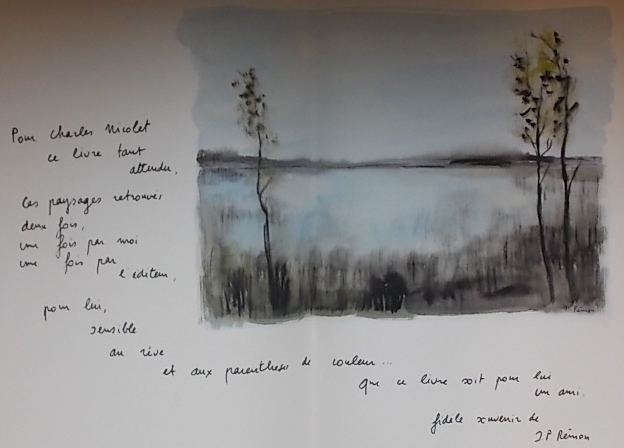 Pour Charles Nicolet
ce livre tant
attendu,
Ces paysages retrouvés
deux fois,
une fois par moi
une fois par
l'éditeur,
pour lui,
sensible
au rêve
et aux parenthèses de couleur...
Que ce livre soit pour lui
un ami.
fidèle souvenir de
J.P. Rémon